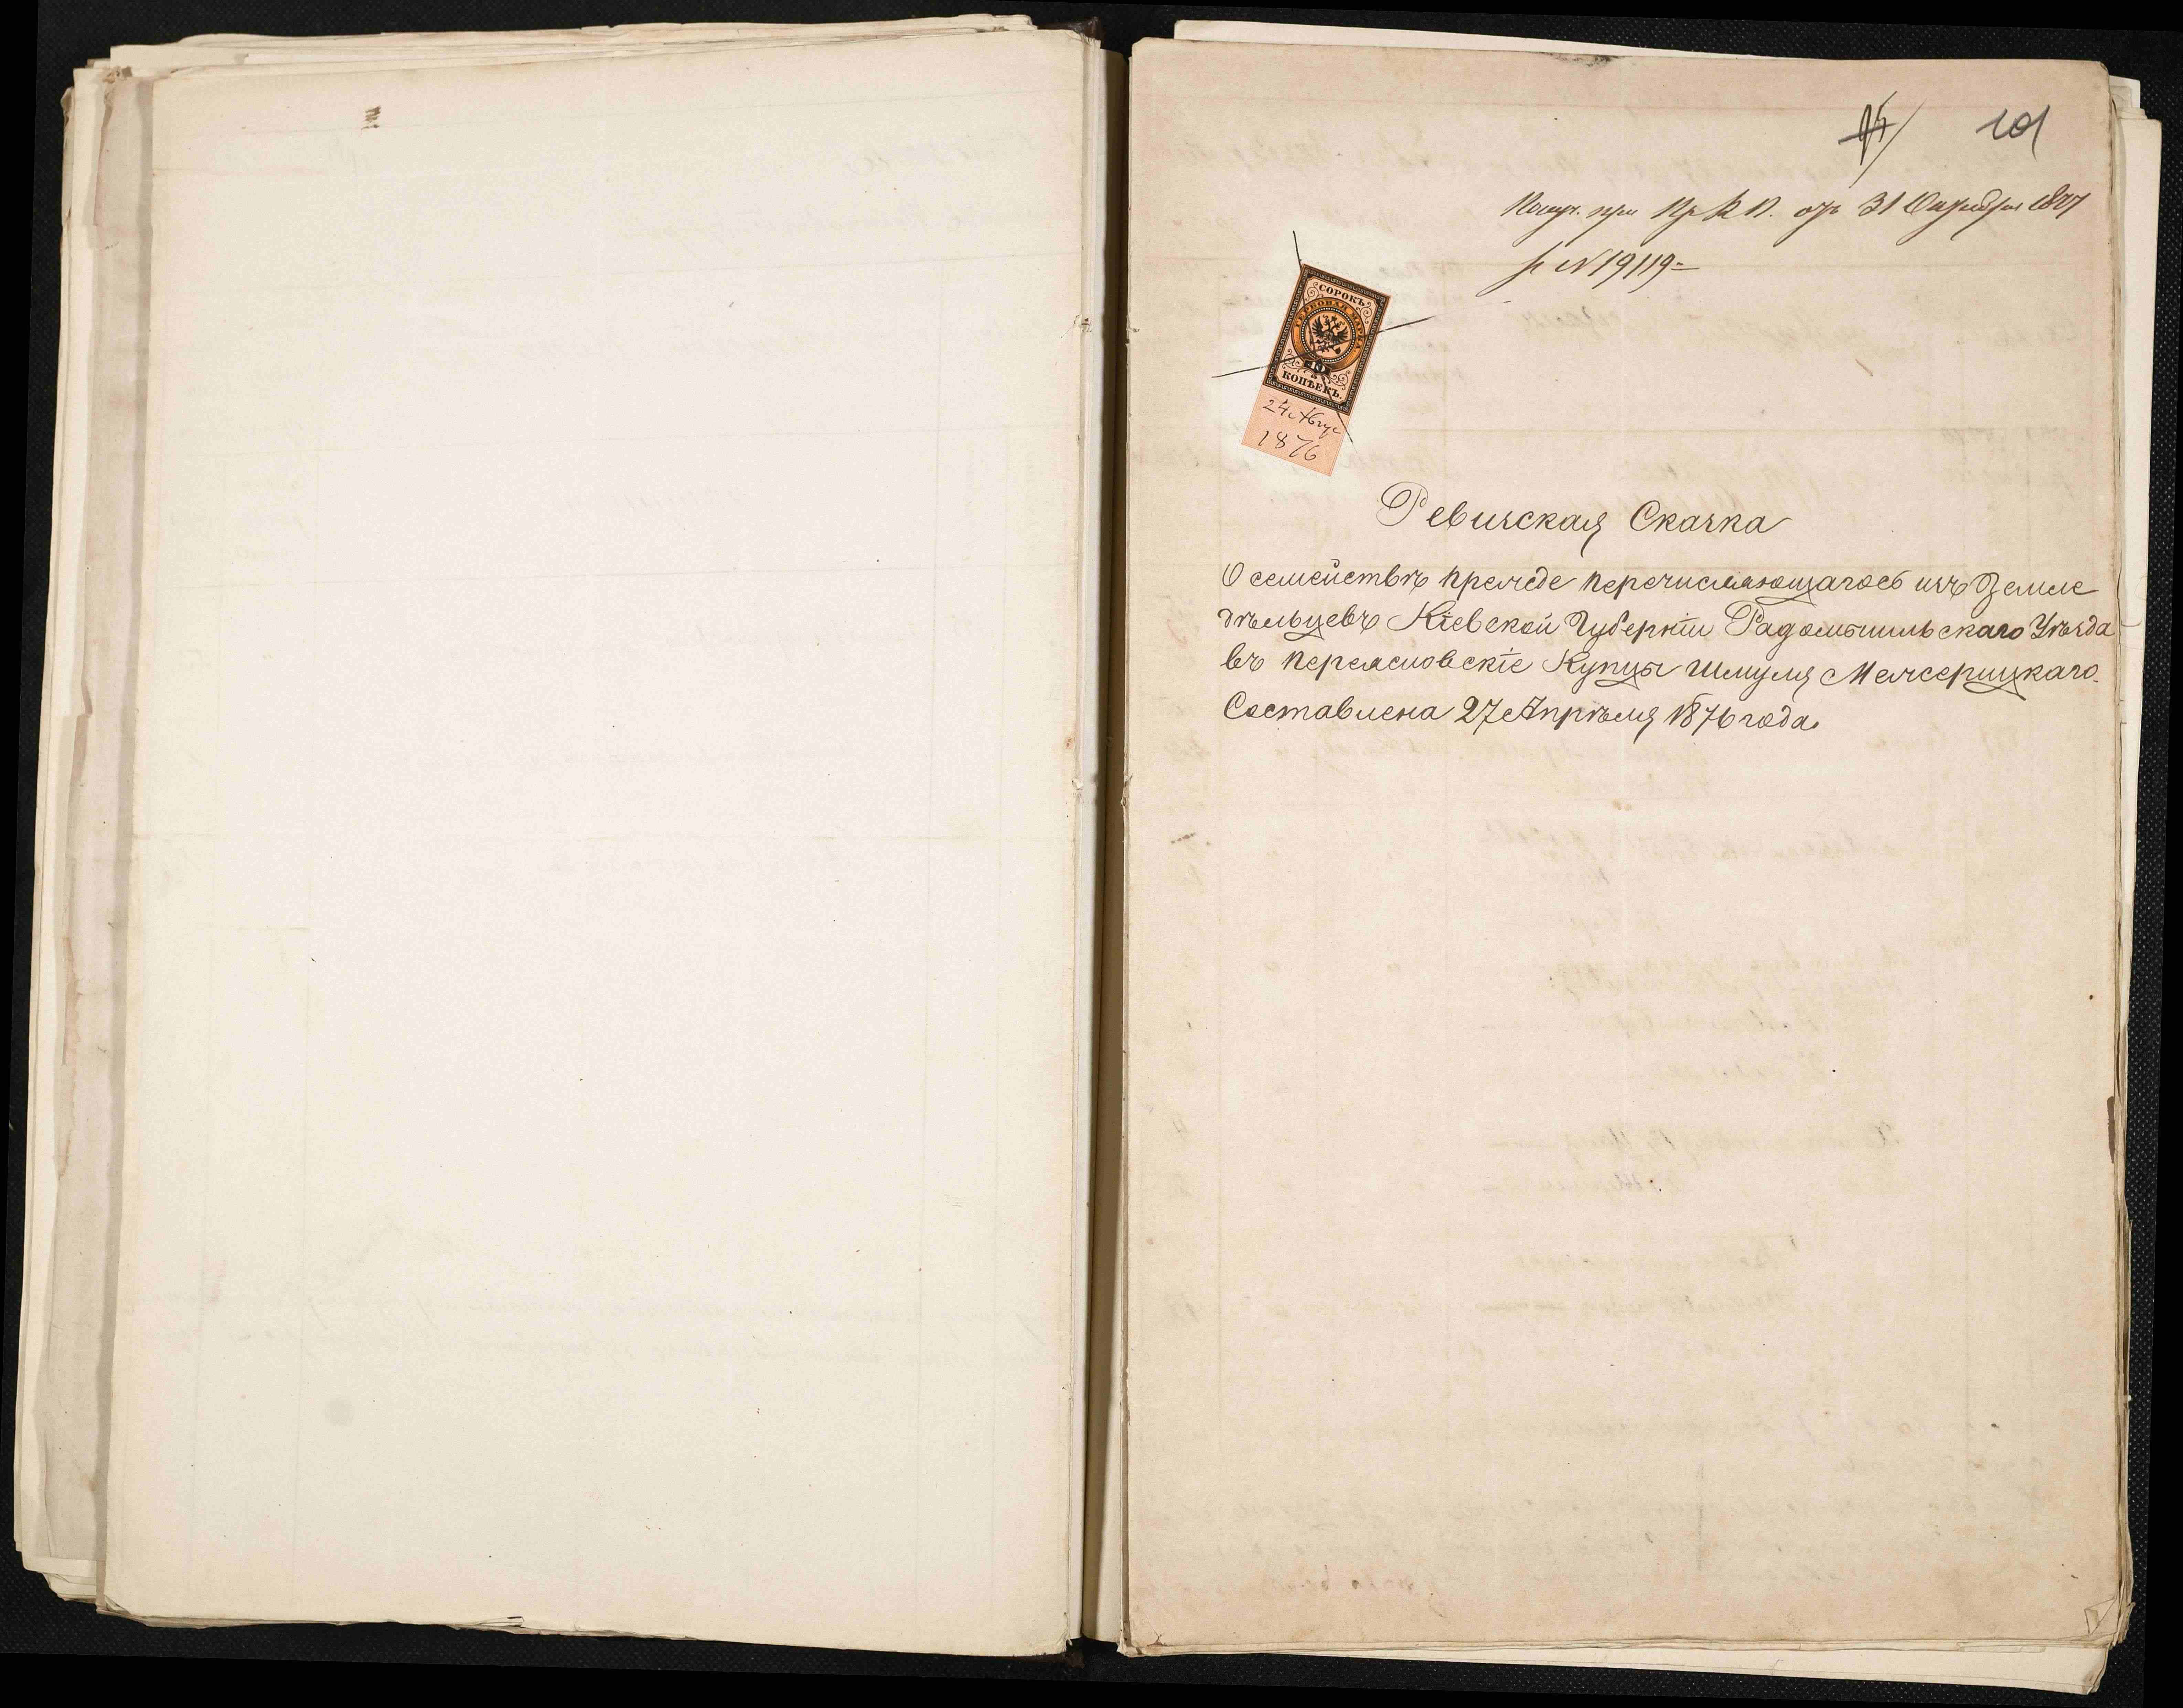 101
Получ. при Пр К П. отъ 31 Октября 1877
за N 19119
СОРОКЪ
ГЕРБОВАЯ МАРКА
40
КОПѢЕКЪ.
24 Авгус
1876
Ревизская Сказка
О семействѣ прежде перечисляющагося изъ Земле
дѣльцевъ Кіевской Губерніи Радомышльскаго Уѣзда
въ переясловскіе Купцы Шмуля Межерицкаго.
Составлена 27 Апрѣля 1876 года.